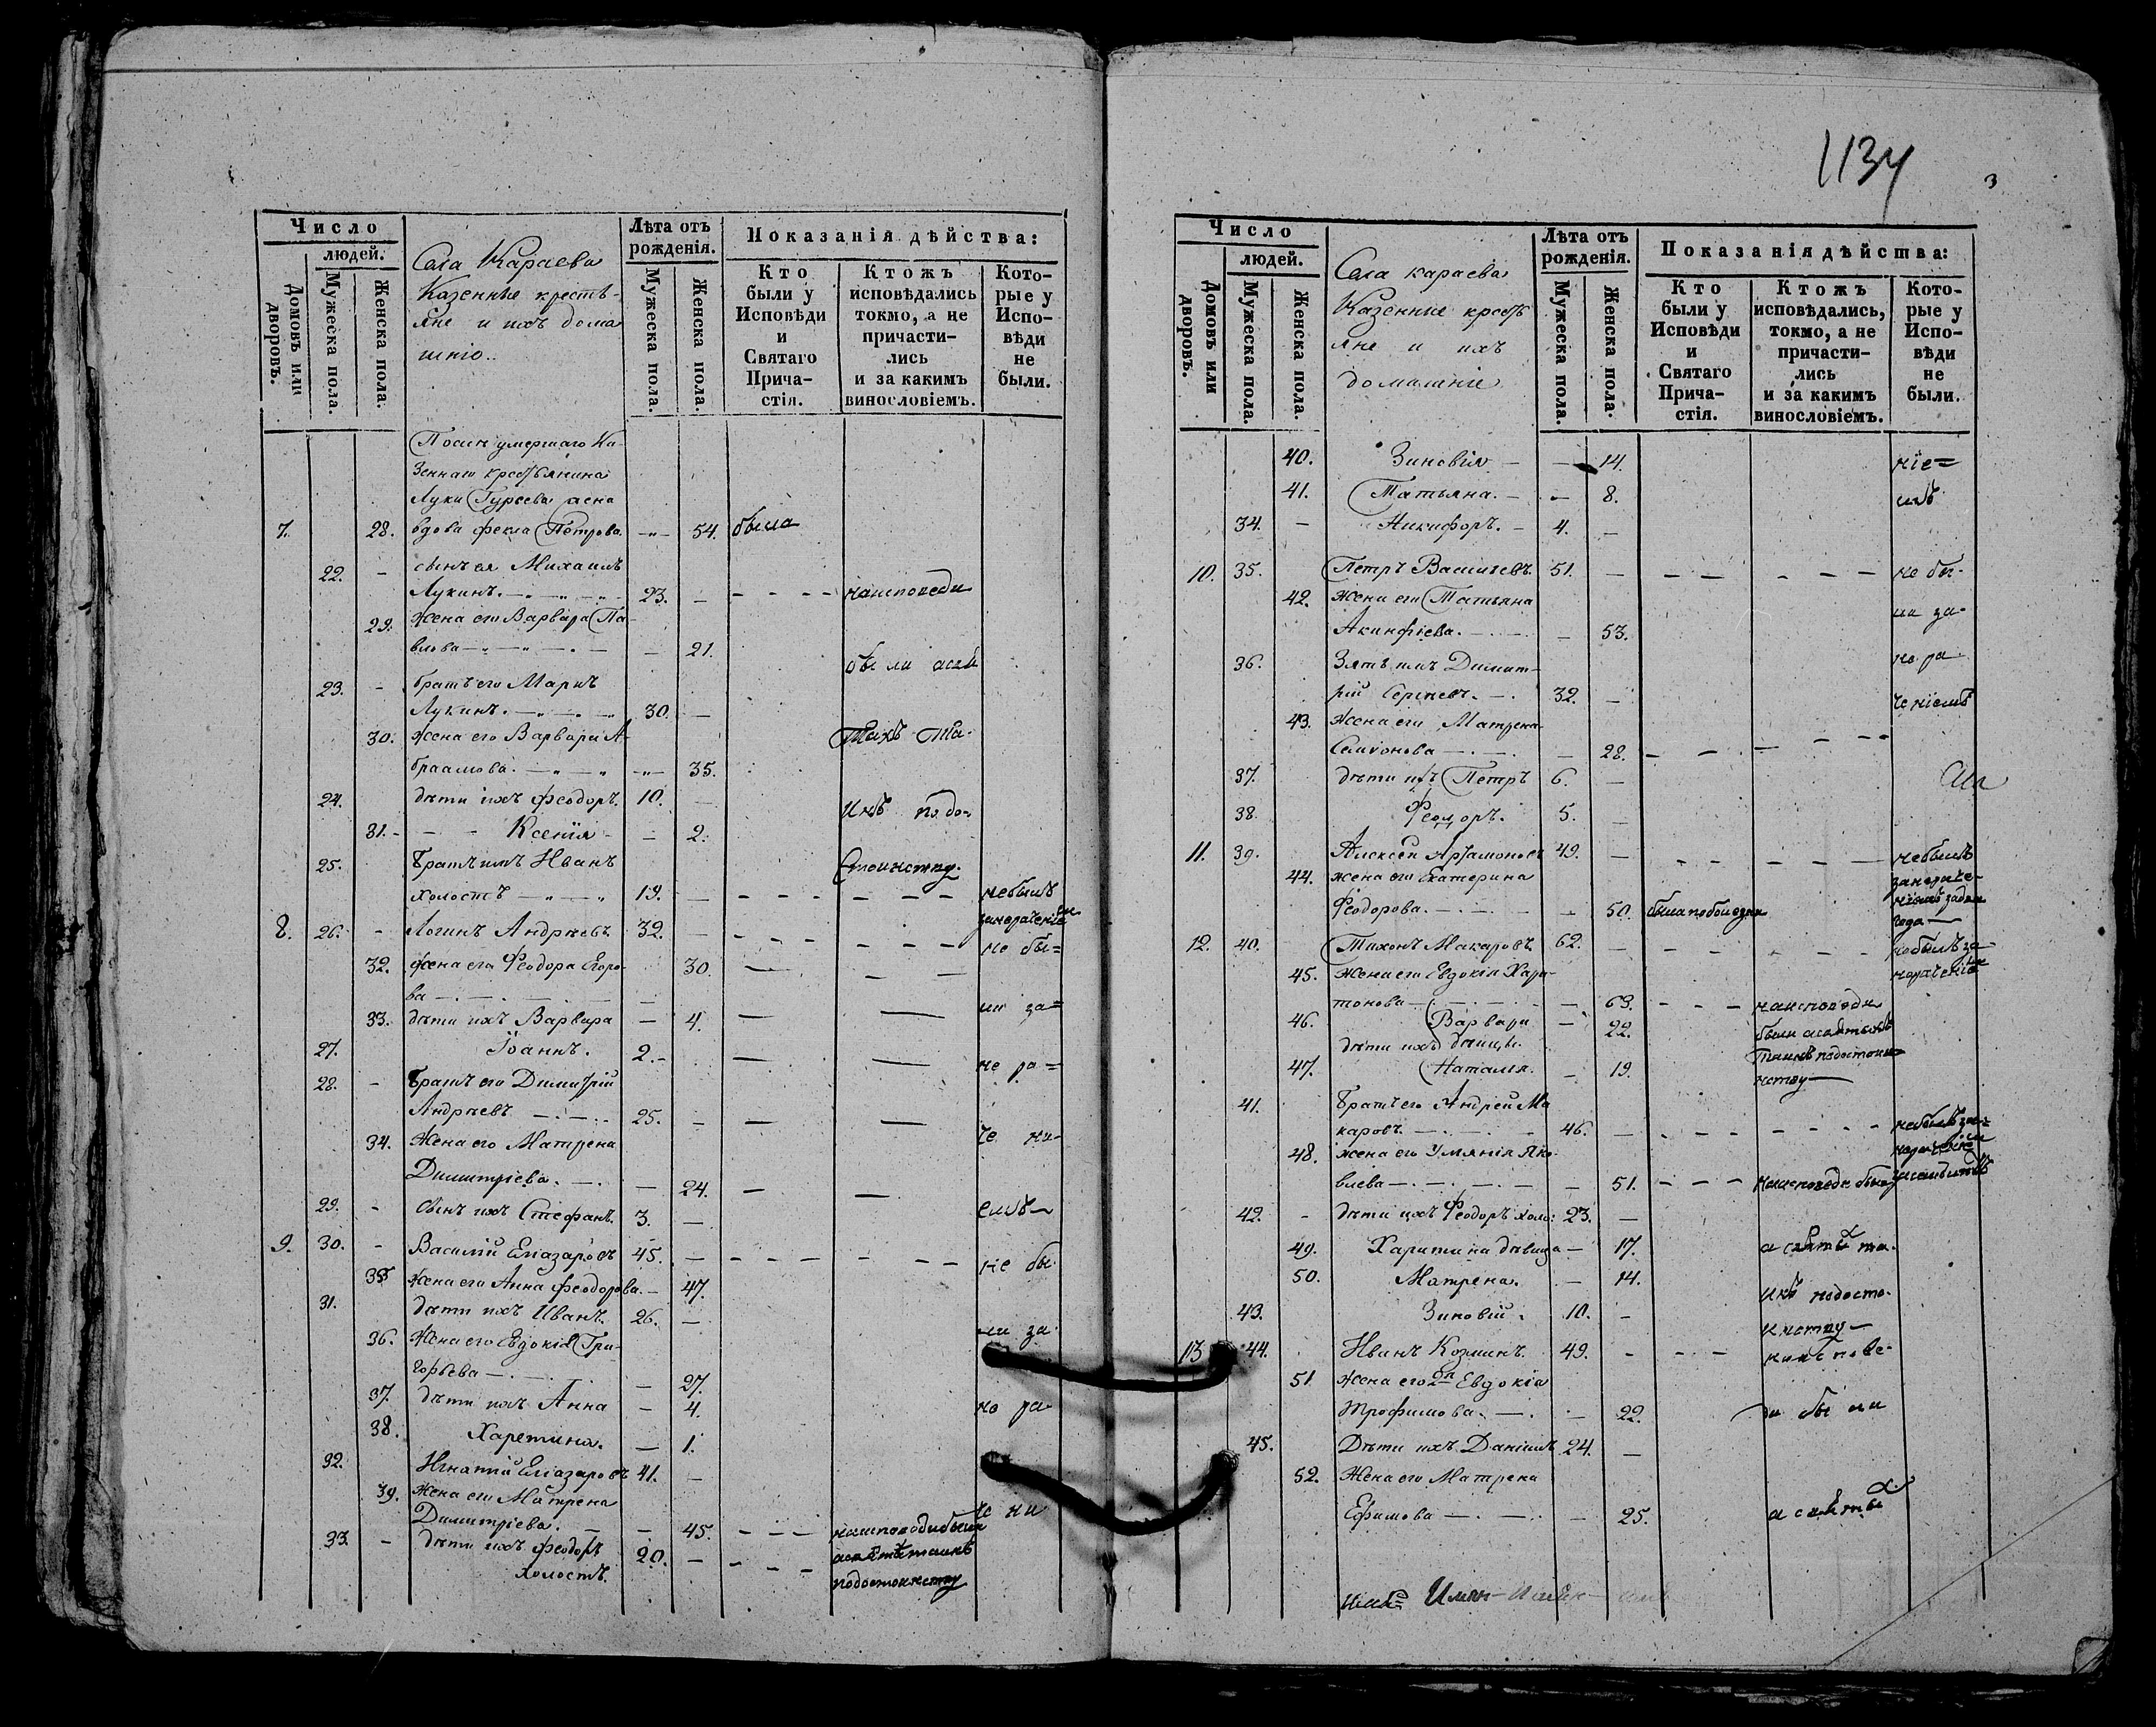 Число
людей.
Домовъ или дворовъ.
Мужеска пола.
Женска пола.
Села Караева
Казенные кресть-
яне и ихъ дома
шніе.
Лѣта отъ рожденія.
Мужеска пола.
Женска пола.
Показанія дѣйства:
Кто были у Исповѣди и Святаго Прича-стія.
Ктожъ исповѣдались токмо, а не причасти-лись и за какимъ винословіемъ.
Кото-рые у Испо-вѣди не были.
умершаго Ка-
зеннаго крестьянина
Луки Гурьева жена
7. 28. вдова Фекла Петрова. — 54. была
22. - сынъ ея Михаилъ
Лукинъ. 23. - наисповеди
29. Жена его Варвара Па-
влова — 21.
были
23. - братъ его
Лукинъ. 30. —
30. Жена его Варвара А-
браамова. — 35.
24. дѣти ихъ Феодоръ. 10. —
31. - Ксенія — 2.
25. Братъ имъ Иванъ
холостъ 19. — небылъ
8. 26. - Логинъ Андреевъ 32. — не бы=
32. Жена его Феодора Егоро-
ва — 30.
ли за=
33. дѣти ихъ Варвара — 4.
27. Іоаннъ. 2. -
не ра=
28. - Братъ его Димитрій
Андреевъ 25. —
че ни-
34. Жена его Матрена
Димитріева. — 24.
29. - Сынъ ихъ Стефанъ. 3. — емъ
9. 30. - Василій Елазаровъ 45. — не бы
35 Жена его Анна Феодорова. — 47.
31. дѣти ихъ Иванъ. 26. —
ли за
36. Жена его Евдокія Гри-
горьева — 27.
37. дѣти ихъ Анна — 4. не ра-
38. Харетина. — 1.
32. Игнатій Елазаровъ 41. —
39. Жена его Матрена
че ни
Димитріева. — 45. наисповеди были
33. - дѣти ихъ Феодоръ 20. —
холостъ.
1134
3
Число
людей.
Домовъ или дворовъ.
Мужеска пола.
Женска пола.
Села караева
Казенные кресть
яне и ихъ
домашніе
Лѣта отъ рожденія.
Мужеска пола.
Женска пола.
Показанія дѣйства:
Кто были у Исповѣди и Святаго Прича-стія.
Ктожъ исповѣдались, токмо, а не причасти-лись и за какимъ винословіемъ.
Кото-рые у Испо-вѣди не были.
40. Зиновія — 14. ніе=
41. Татьяна. — 8. мъ
34. - Никифоръ. - 4. —
10. 35. Петръ Васильевъ. 51. — не бы-
42. Жена его Татьяна
ли за-
Акинфіева. — 53.
36. Зять имъ Димит-
не ра-
рій Сергеевъ. 32. —
ченіемъ
43. Жена его Матрена
Самсонова — 28.
37. дѣти ихъ Петръ 6. —
38. Феодоръ. 5. —
11. 39. Алексѣй Артамоновъ 49. — небылъ
44. жена его Екатерина
Феодорова. — 50. была
12. 40. Тихонъ Макаровъ. 62. — небылъ за-
45. Жена его Евдокія Хари-
тонова — 63. наисповеди
46. Варвара — 22. были
дѣти ихъ девицы.
47. Наталія. — 19.
41. Братъ его Андрей Ма
каровъ. 46. — небылъ за-
48. жена его Уліянія Яко-
влева — 51. наисповеди была
42. - дѣти ихъ Феодоръ холо: 23. —
49. Харитина дѣвица — 17.
50. Матрена. — 14.
43. Зиновій. 10. -
13 44. Иванъ Козминъ. 49. - наиспове-
51 Жена его Евдокія
Трофимова. — 22. ди были
45. Дѣти ихъ Даніилъ 24. —
52. Жена его Матрена
Ефимова — 25.